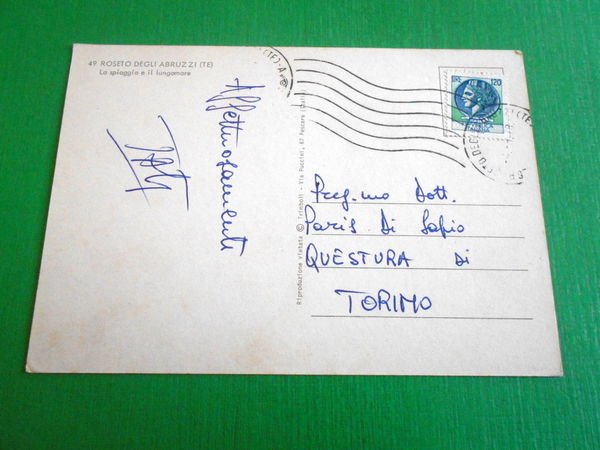 49 ROSETO DEGLI ABRUZZI (TE)
La spiaggia e il lungomare
Affettuosamente
Riproduzione vietata © Trimboli - Via Puccini, 87 Pescara (Italy)
LIRE 120
(TE)
Preg.mo Dott.
Paris Di Sapio
QUESTURA di
TORINO